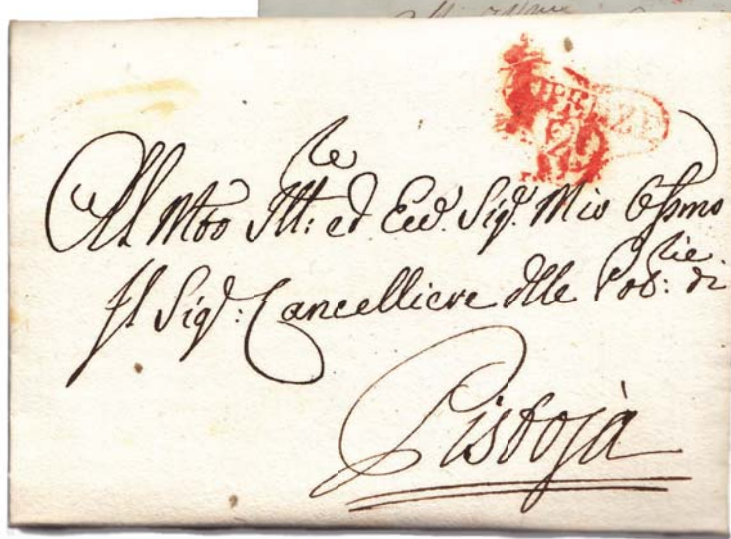 FIRENZE
29
Al Mto Ill:re ed Ecc.̃ Sig.r Mio Ossmo
Il Sig.r: Cancelliere dlle Pos:tie di
Pistoja